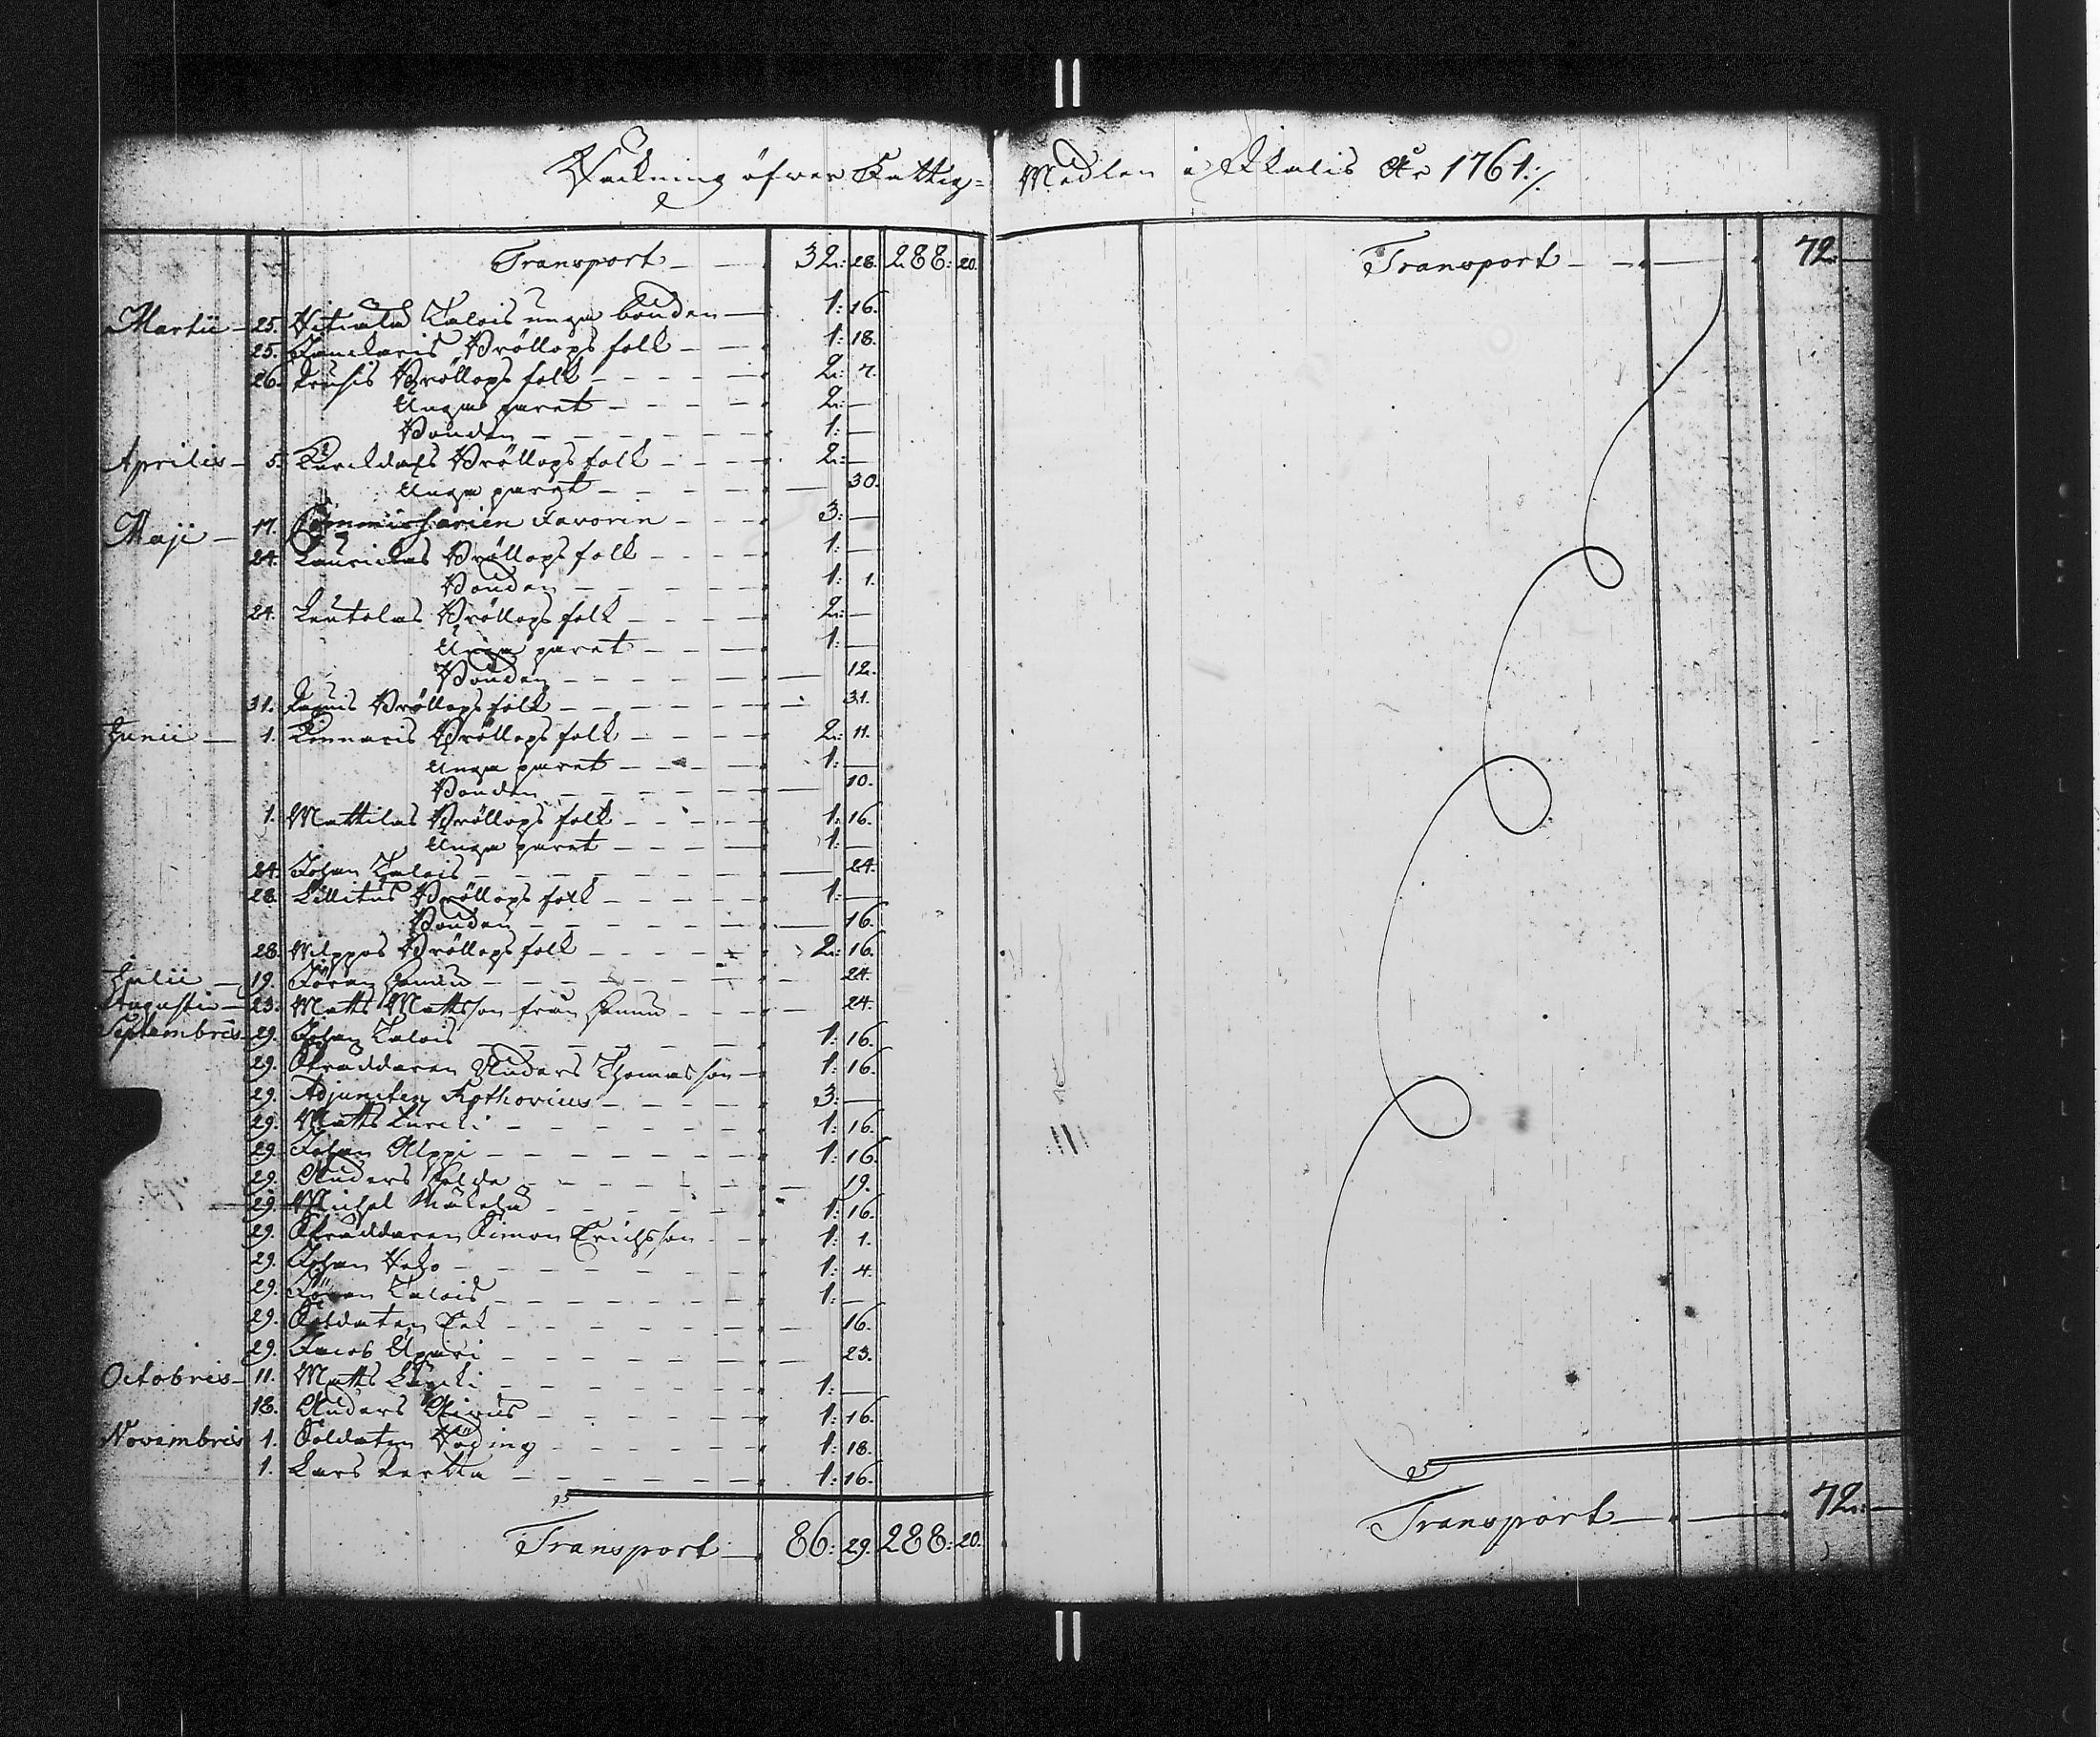 Räckning öfwer Fattig-Medlen i Ikalis År 1761./.
Transport 32: 28. 288: 20.
Martii 25. Talois unga bonden 1: 16.
25. Bröllops folk 1: 18.
26. Bröllops folk 2: 7.
Unga paret 2: —
Bonden 1: —
Aprilis 5. Bröllops folk 2: —
Unga paret — 30.
Maji 17. Commissarien Favorin 3: —
24. Bröllops folk 1: —
Bonden 1: 1.
24. Leutolas Bröllops folk 2: —
Unga paret 1: —
Bonden — 12.
31. Bröllops folk — 31.
Junii 1. Bröllops folk 2: 11.
Unga paret 1: —
Bonden — 10.
1. Mattilas Bröllops folk 1: 16.
Unga paret 1: —
24. Johan Talois — 24.
28. Bröllops folk 1: —
Bonden — 16.
28. Wilppos Bröllops folk 2: 16.
Julii 19. Jöran — 24.
Augusti 23. Matts Mattsson från — 24.
Septembris 29. Johan Talois 1: 16.
29. Skräddaren Anders Thomasson 1: 16.
29. Adjuncten 3: —
29. Matts 1: 16.
29. Johan Alppi 1: 16.
29. Anders — 19.
29. Michel Mäkelä 1: 16.
29. Skräddaren Simon Erichsson 1: 1.
29. Johan 1: 4.
29. Jöran Talois 1: —
29. Soldaten Ek — 16.
29. Jacob — 23.
Octobris 11. Matts 1: —
18. Anders 1: 16.
Novembris 1. Soldaten 1: 18.
1. Lars 1: 16.
Transport 86: 29. 288: 20.
Transport 72: —
Transport 72: —